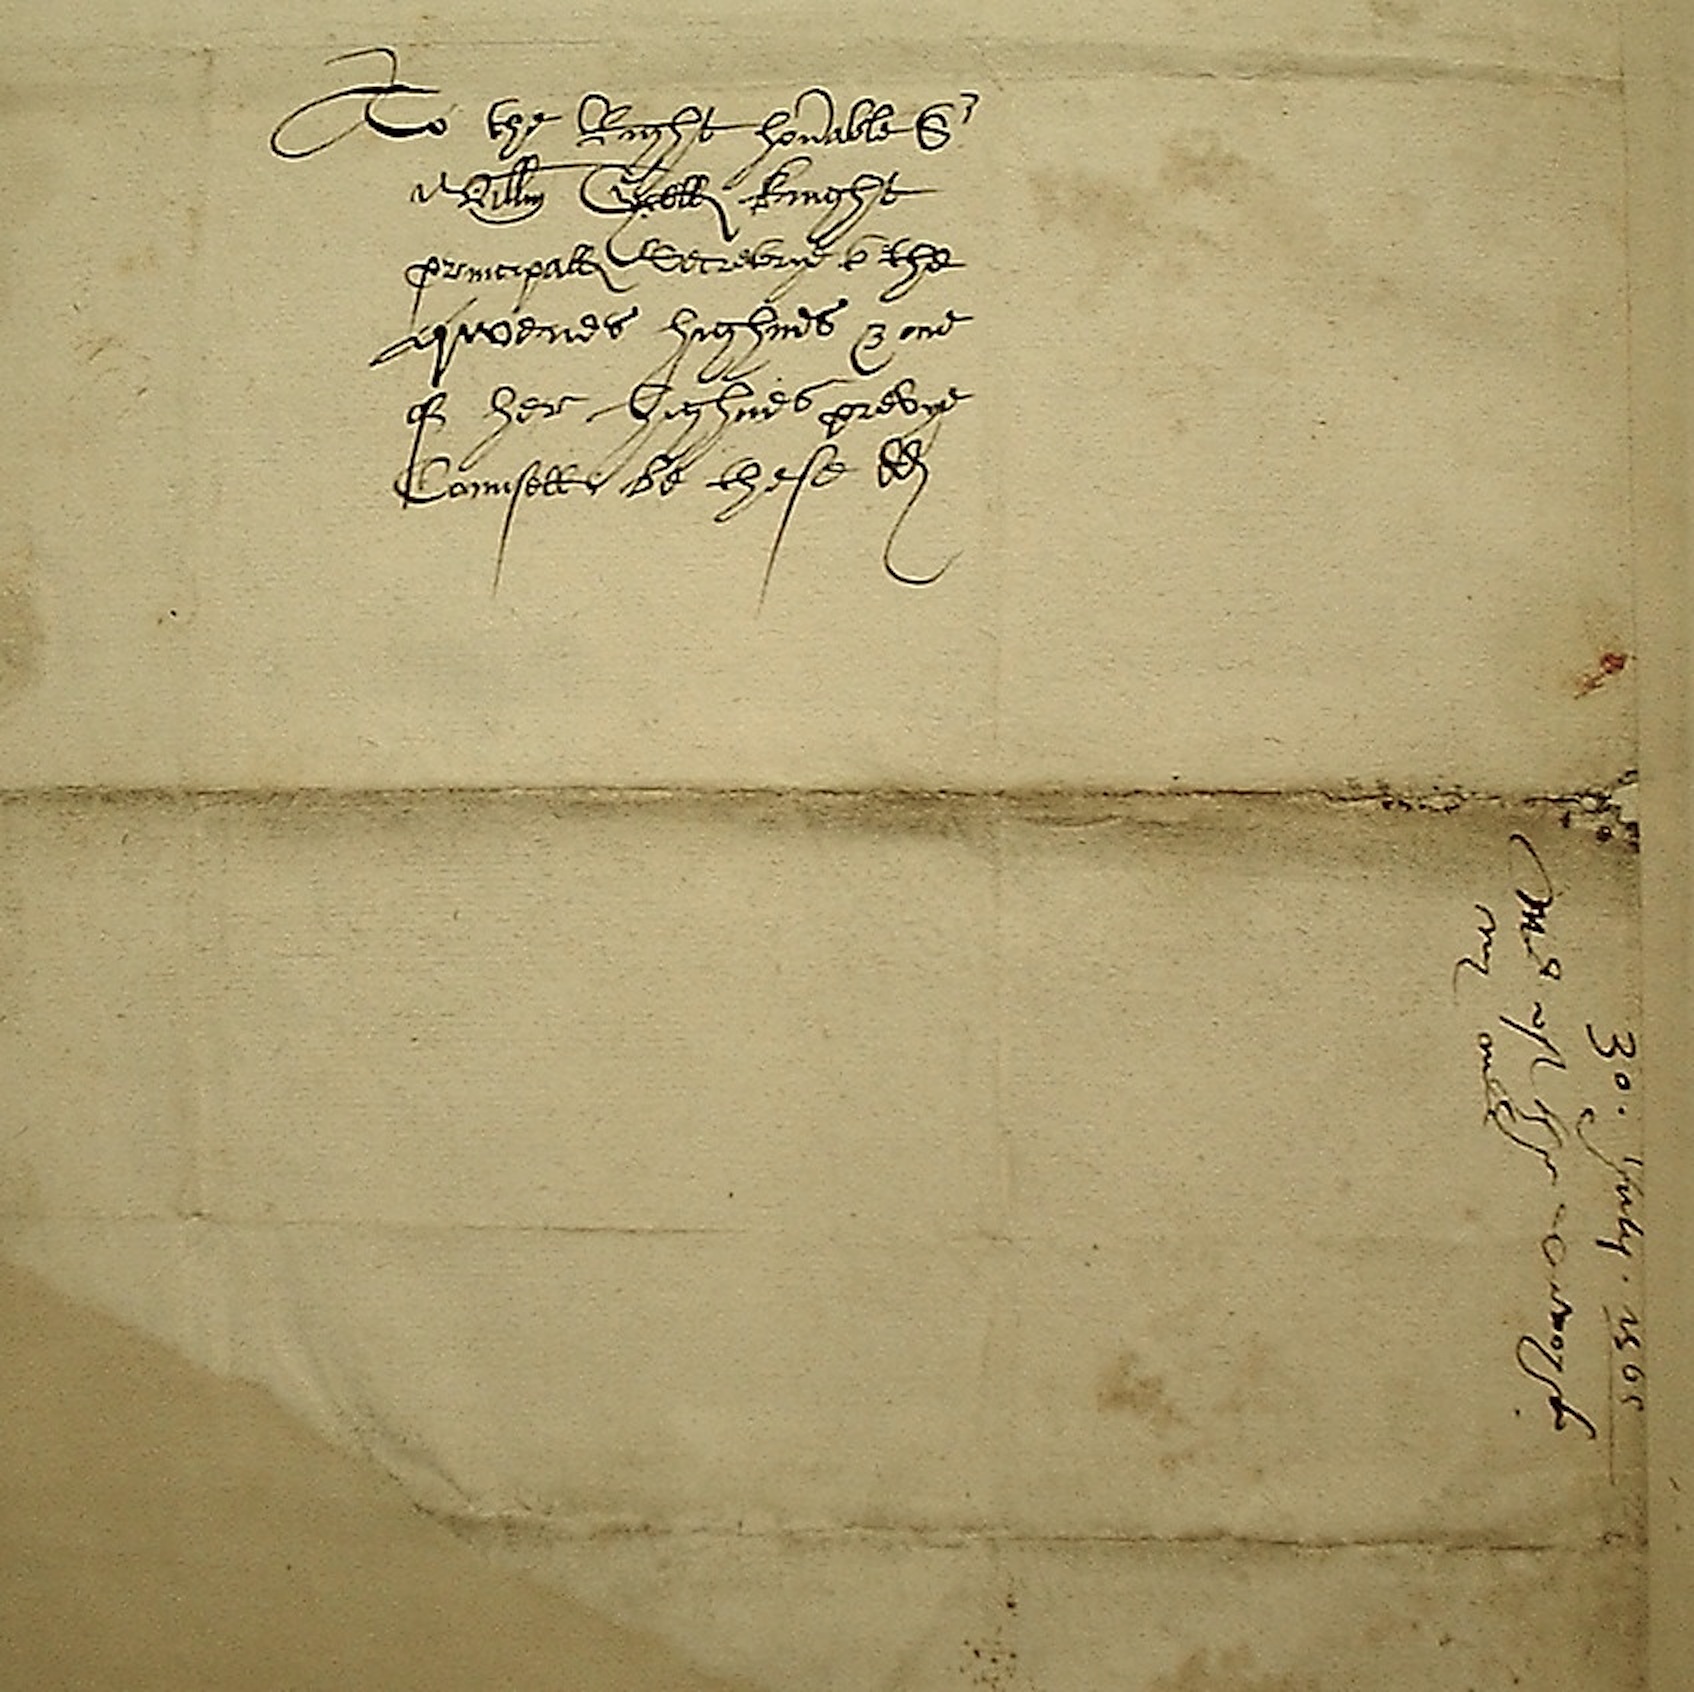 To the Right honable Sr
Willm Cecill knight
principall Secretarye to the
qwenes highnes & one
of her highnes prevye
Counsell be these dd
30. July. 1565